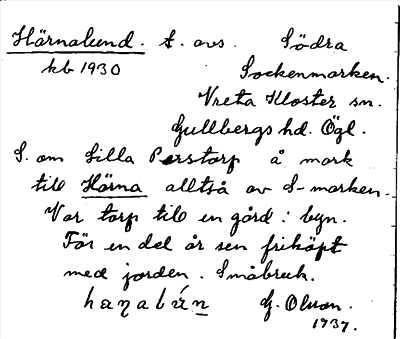 Härnalund. t. avs. Södra
kb 1930 Sockenmarken.
Vreta Kloster sn.
Gullbergs hd. Ögl.
S. om Lilla Perstorp å mark
till Härna alltså av S-marken.
Var torp till en gård i byn.
För en del år sen friköpt
med jorden. Småbruk.
G. Olson.
1937.